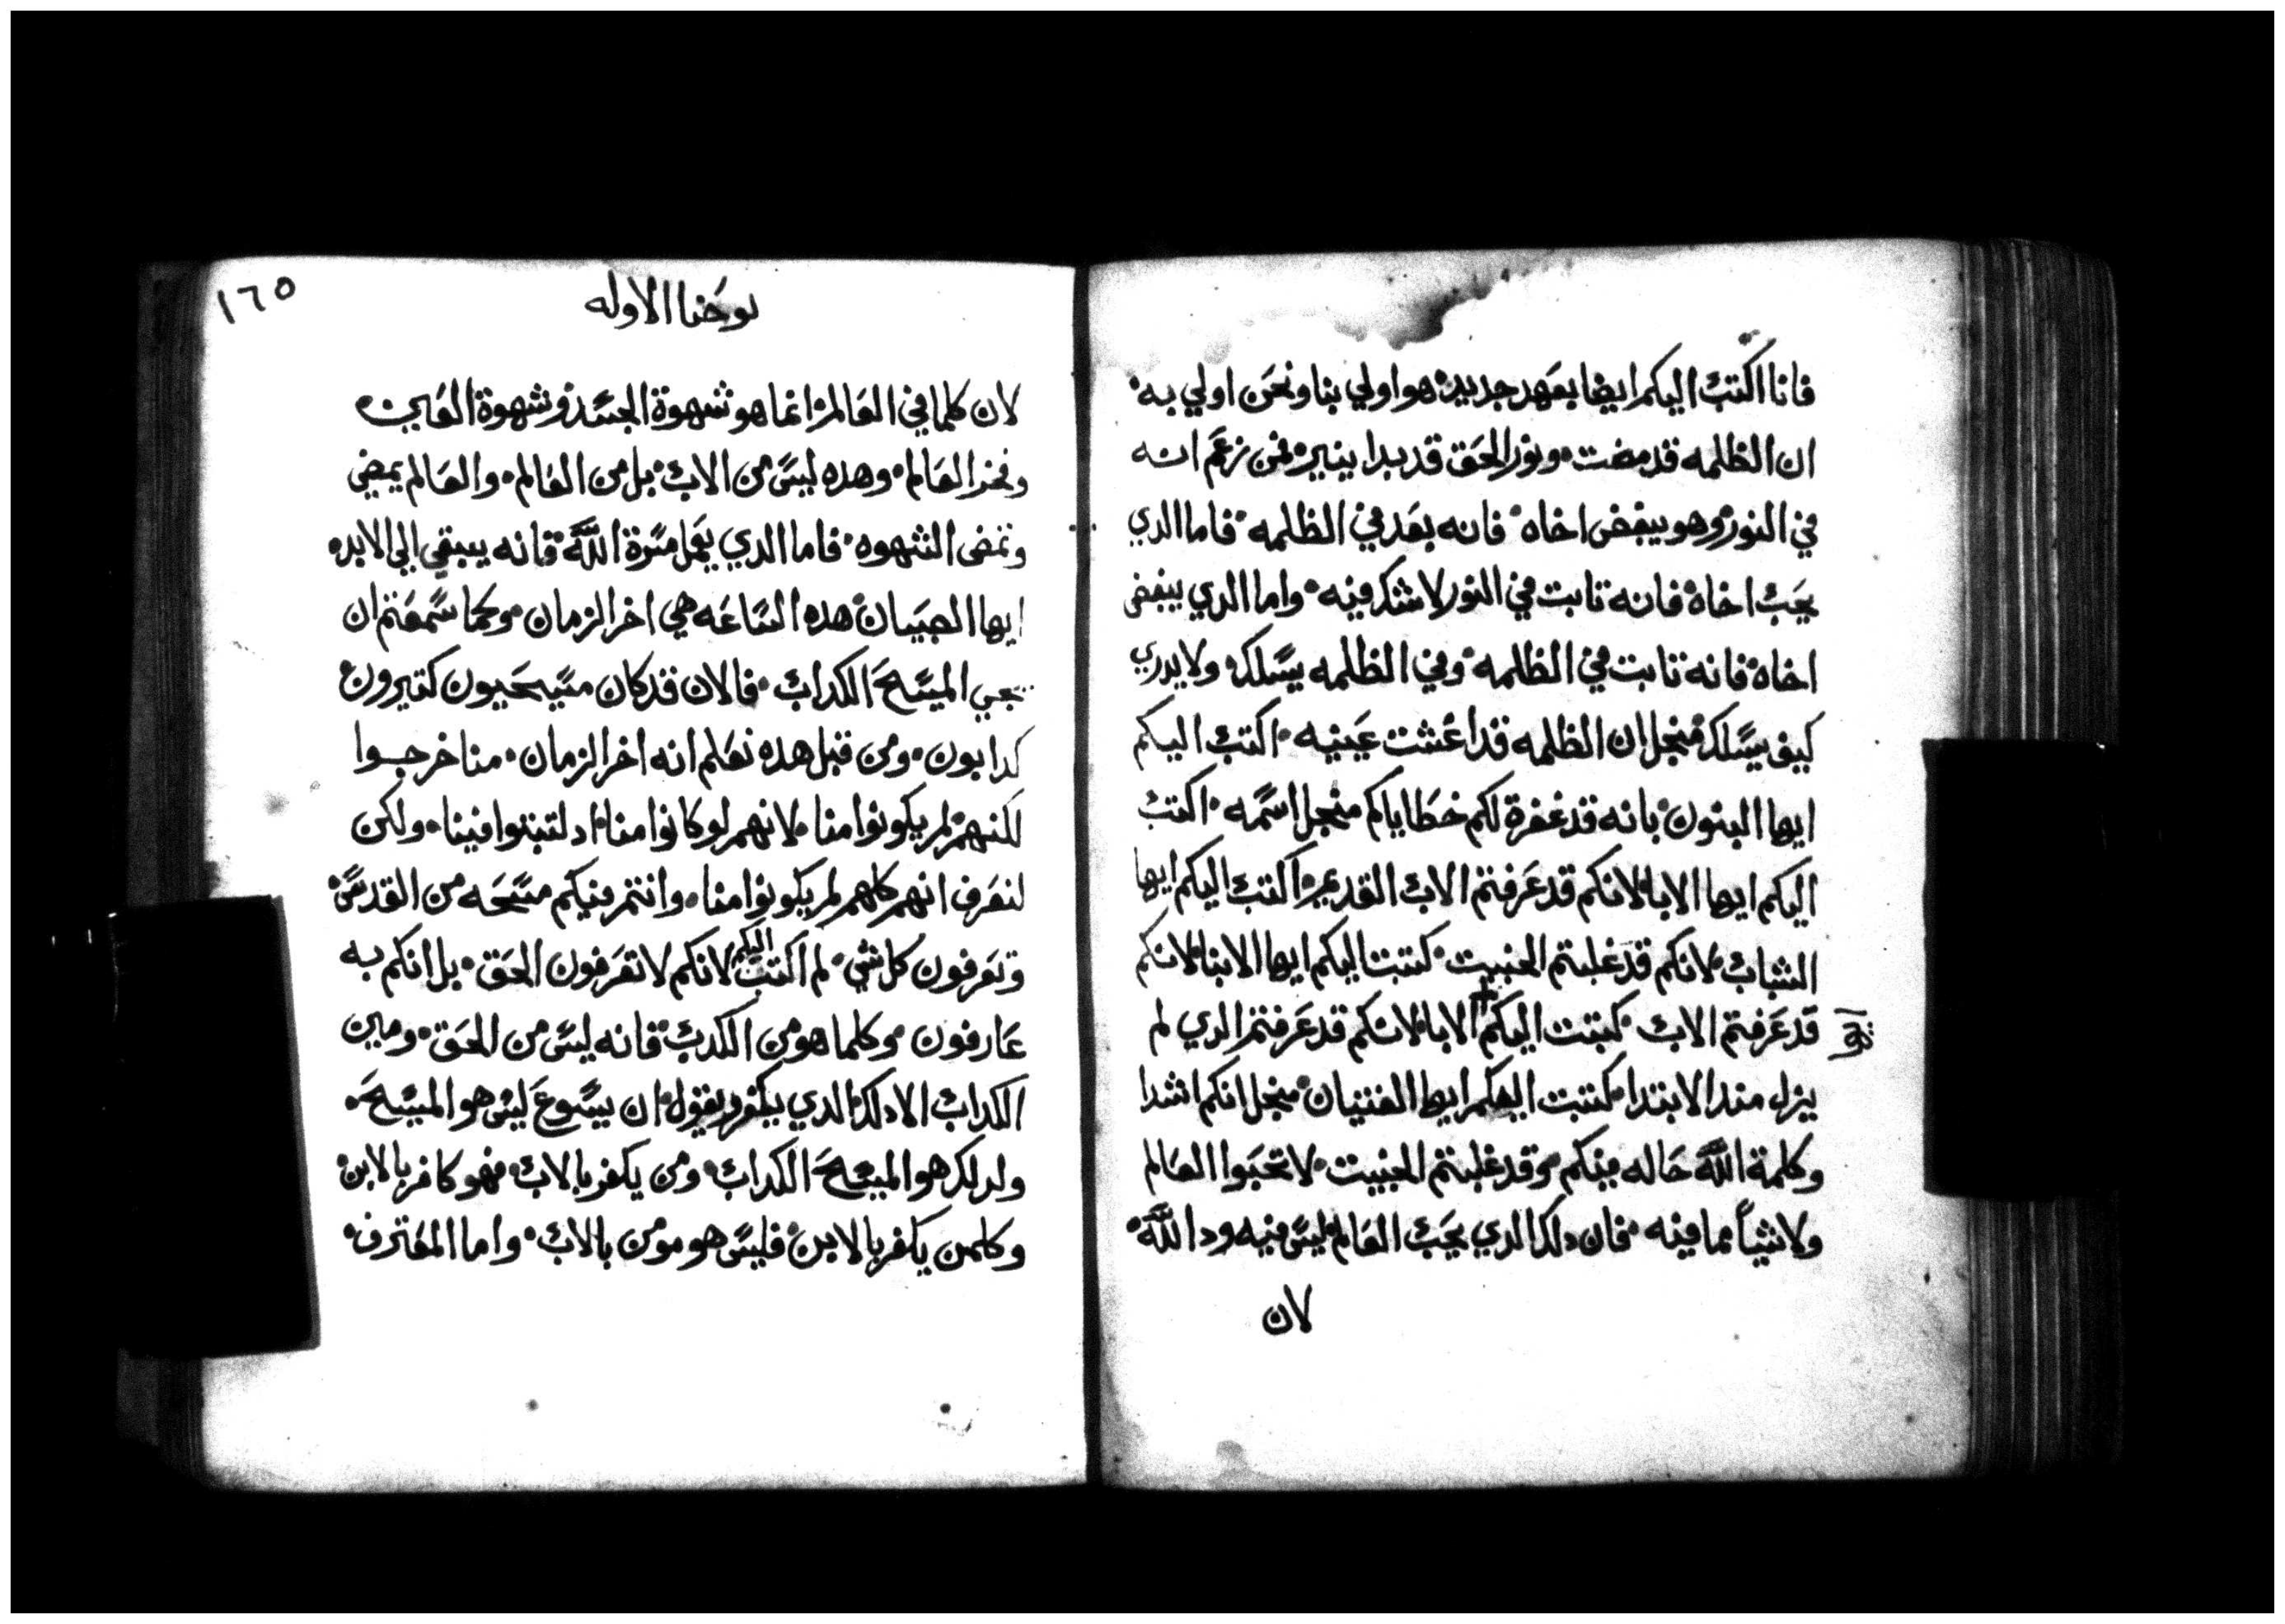 فانا اكتب اليكم ايضا بعهد جديد هو اولي بنا ونحن اولي به
ان الظلمه قد مضت ونور الحق قد بدا ينير فمن زعم انه
في النور وهو يبغض اخاه فانه بعد في الظلمه فاما الدي
يحب اخاه فانه تابت في النور لا شك فيه واما الدي يبغض
اخاه فانه تابت في الظلمه وفي الظلمه يسلك ولا يدري
كيف يسلك منجل ان الظلمه قد اعشت عينيه اكتب اليكم
ايها البنون بانه قد غفرة لكم خطاياكم منجل اسمه اكتب
اليكم ايها الابا لانكم قد عرفتم الاب القديم اكتب اليكم ايها
الشباب لانكم قد غلبتم الخبيت كتبت اليكم ايها الابنا لانكم
قد عرفتم الاب كتبت اليكم الابا لانكم قد عرفتم الدي لم
يزل مند الابتدا كتبت اليكم ايها الفتيان منجل انكم اشدا
وكلمة الله حاله فيكم وقد غلبتم الخبيت لا تحبوا العالم
ولا شياً مما فيه فان دلك الدي يحب العالم ليس فيه ود الله
لان
١٦٥
يوحنا الاوله
لان كلما في العالم انما هو شهوة الجسد وشهوة العين
وفخر العالم وهده ليس من الاب بل من العالم والعالم يمضي
وتمضى الشهوه فاما الدي يعمل مسرة الله فانه يبقي الي الابد
ايها الصبيان هده الساعه هي اخر الزمان وكما سمعتم ان
يجي المسيح الكداب فالان قد كان مسيحيون كتيرون
كدابون ومن قبل هده نعلم انه اخر الزمان منا خرجوا
لكنهم لم يكونوا منا لانهم لو كانوا منا اد لتبتوا فينا ولكن
لنعرف انهم كلهم لم يكونوا منا وانتم فيكم مسحه من القدس
وتعرفون كل شي لم اكتب اليكم لانكم لا تعرفون الحق بل انكم به
عارفون وكلما هو من الكدب فانه ليس من الحق ومين
الكداب الا دلك الدي يكفر ويقول ان يسوع ليس هو المسيح
ولدلك هو المسيح الكداب ومن يكفر بالاب فهو كافر بالابن
وكلمن يكفر بالابن فليس هو مومن بالاب واما المعترف